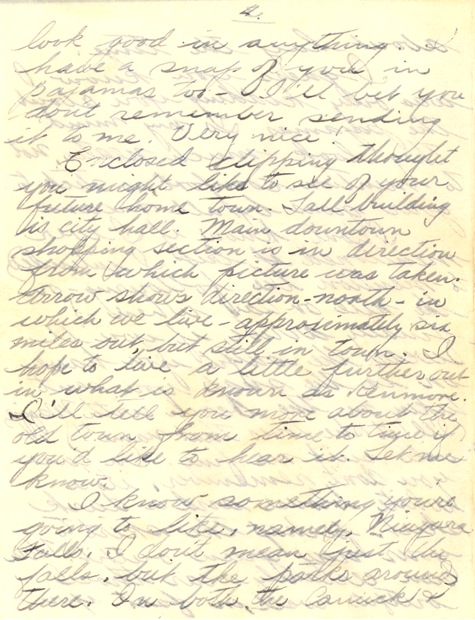 4.
look good in anything. I
have a snap of you in
pajamas too - I'll bet you
don't remember sending
it to me. Very nice!
Enclosed clipping thought
you might like to see of your
future home town. Tall building
is city hall. Main downtown
shopping section is in direction
from which picture was taken.
Arrow shows direction - north - in
which we live - approximately six
miles out, but still in town. I
hope to live a little further out
in what is known as Kenmore.
I'll tell you more about the
old town from time to time if
you'd like to hear it. Let me
know.
I know something you're
going to like, namely, Niagara
Falls. I don't mean just the
falls, but the parks around
there. In both the Canuck &